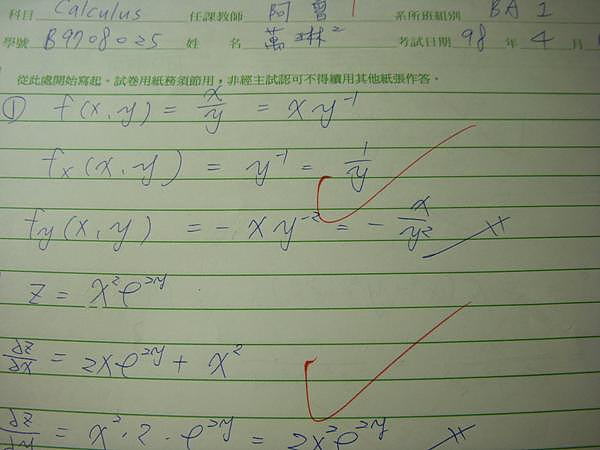 科目 Calculus 任課教師 阿曹 系所班組別 BA 1
學號 B9708025 姓名 萬琳² 考試日期 98 年 4 月
從此處開始寫起。試卷用紙務須節用，非經主試認可不得續用其他紙張作答。
① f(x,y) = x/y = xy⁻¹
fx(x,y) = y⁻¹ = 1/y
fy(x,y) = -xy⁻² = -x/y²
z = x²e^2y
∂z/∂x = 2xe^2y + x²
∂z/∂y = x²·2·e^2y = 2x²e^2y